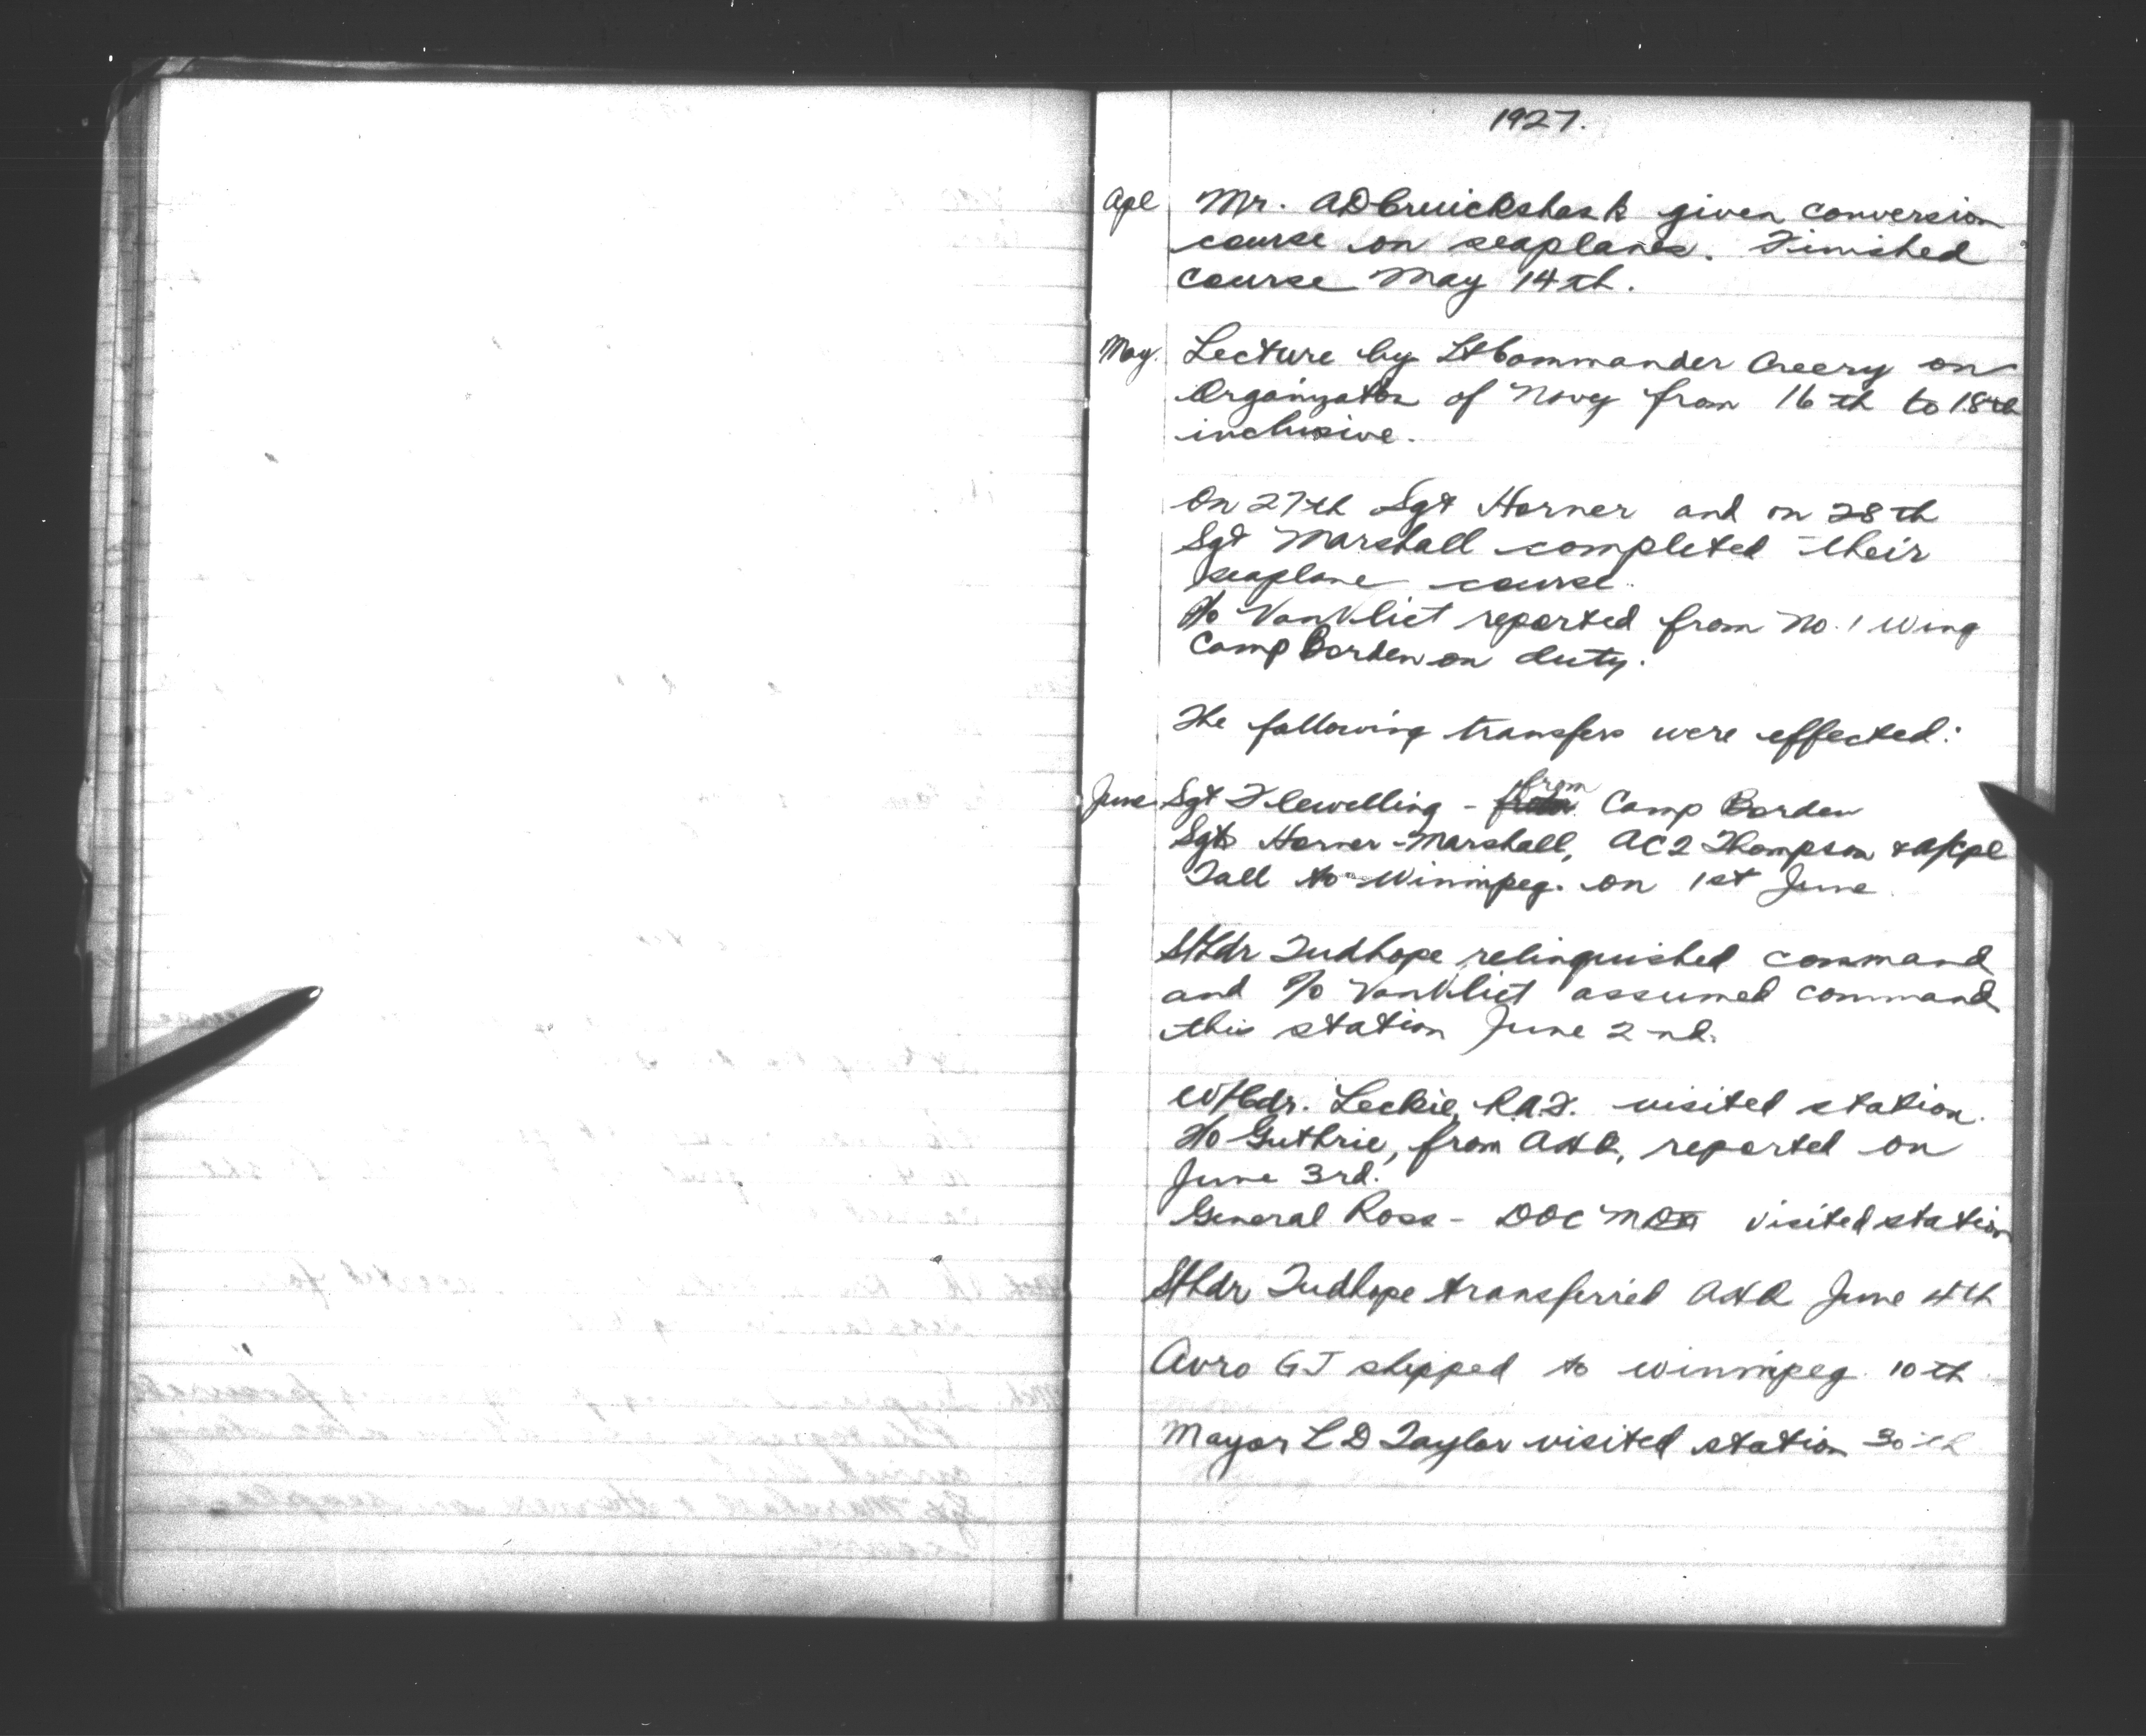 1927.
Apl Mr. A D Cruickshank given conversion
course on seaplanes. Finished
course May 14th.
May. Lecture by Lt Commander Creery on
Organization of Navy from 16th to 18th
inclusive.
On 27th Sgt Horner and on 28th
Sgt Marshall completed their
seaplane course.
F/o VanVliet reported from No. 1 Wing
Camp Borden on duty.
The following transfers were effected:
June Sgt Flewelling - from Camp Borden
Sgts Horner - Marshall, AC2 Thompson & A/Cpl
Tall to Winnipeg. on 1st June
S/Ldr Tudhope relinquished command
and F/o VanVliet assumed command
this station June 2nd.
W/Cdr. Leckie, R.A.F. visited station.
F/o Guthrie, from AHQ, reported on
June 3rd.
General Ross - DOC MD visited station
S/Ldr Tudhope transferred AHQ June 4th
Avro GJ shipped to Winnipeg 10th
Mayor L D Taylor visited station 30th